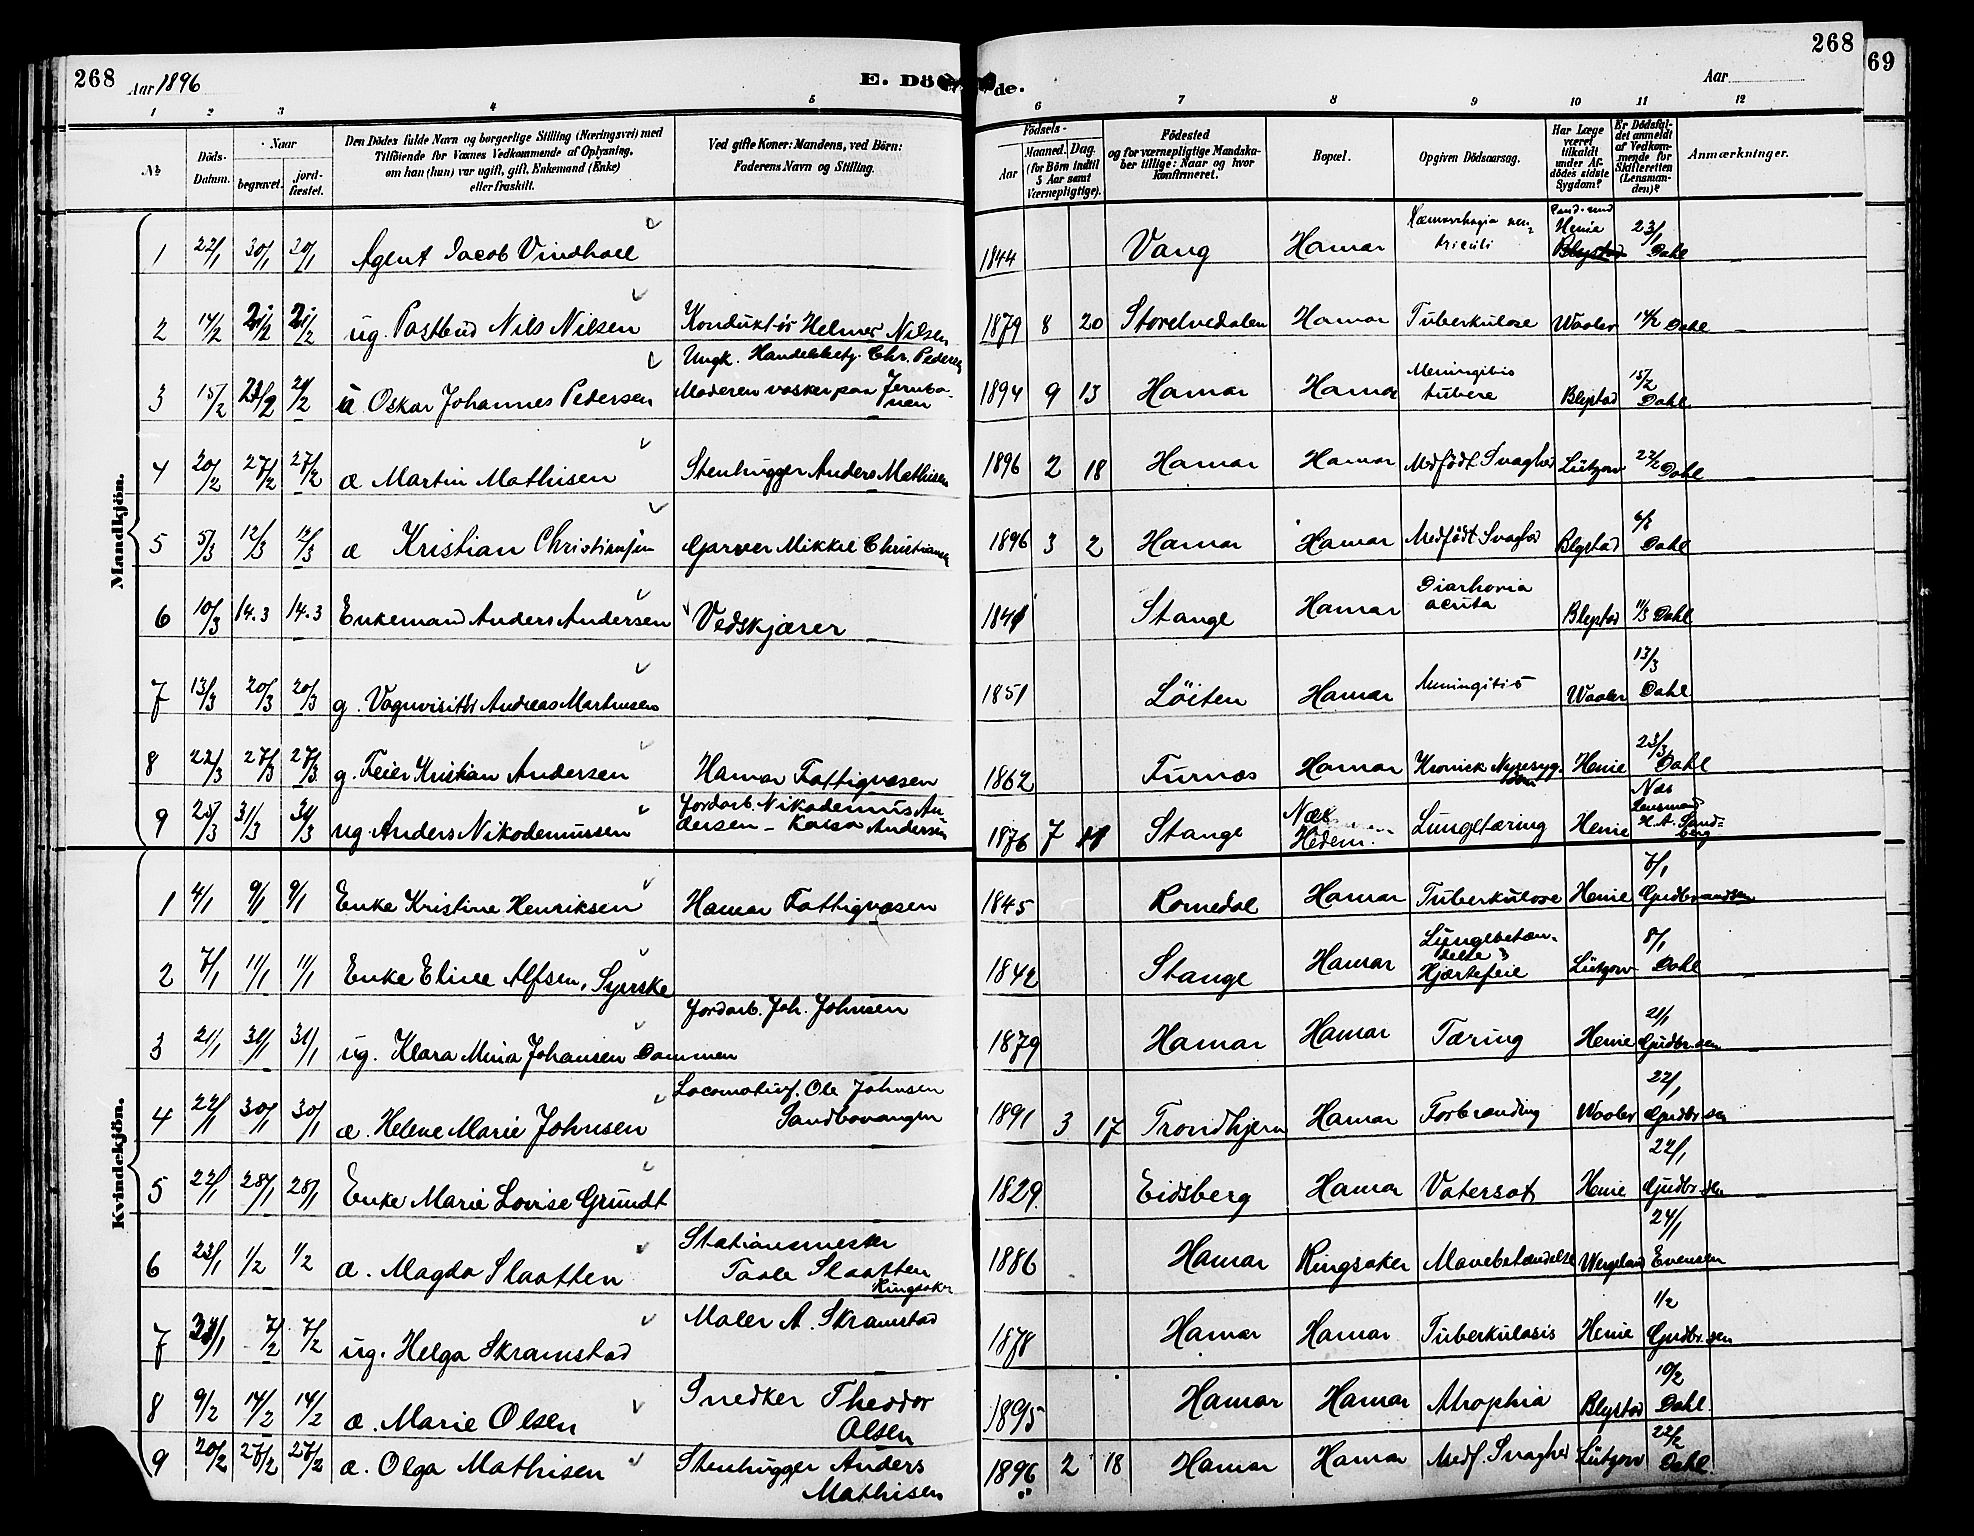 268
268
69
Aar 1896
E. Dö de.
Aar
1 2 3 4 5 6 7 8 9 10 11 12
№
Döds-Datum.
Naar
begravet.
jord-fæstet.
Den Dödes fulde Navn og borgerlige Stilling (Næringsvei) med
Tilföiende for Voxnes Vedkommende af Oplysning,
om han (hun) var ugift, gift, Enkemand (Enke)
eller fraskilt.
Ved gifte Koner: Mandens, ved Börn:
Faderens Navn og Stilling.
Födsels-
Aar
Maaned. Dag.
(for Börn indtil
5 Aar samt
Værnepligtige).
Födested
og for værnepligtige Mandska-
ber tillige: Naar og hvor
konfirmeret.
Bopæl.
Opgiven Dödsaarsag.
Har Læge
været
tilkaldt
under Af-
dödes sidste
Sygdom?
Er Dödsfal-
det anmeldt
af Vedkom-
mende for
Skifteretten
(Lensman-
den)?
Anmærkninger.
Mandkjön.
1 22/1 30/1 30/1 Agent Jacob Vindhall 1844 Vang Hamar Hæmorrhagia ven-triculi Cand. med Henie Blystad 23/1 Dahl
2 14/2 21/2 21/2 ug. Postbud Nils Nilsen Konduktör Helmer Nilsen 1879 8 20 Storelvedalen Hamar Tuberkulose Waaler 14/2 Dahl
3 15/2 21/2 21/2 u Oskar Johannes Pedersen Ungk. Handelsbetj. Chr. Pedersen Moderen vasker paa Jernba-nen 1894 9 13 Hamar Hamar Meningitis tuberc Blystad 15/2 Dahl
4 20/2 27/2 27/2 æ Martin Mathisen Stenhugger Anders Mathisen 1896 2 18 Hamar Hamar Medfödt Svaghed Lützow 22/2 Dahl
5 5/3 12/3 12/3 æ Kristian Christiansen Garver Mikkel Christiansen 1896 3 2 Hamar Hamar Medfödt Svaghed Blystad 6/3 Dahl
6 10/3 14.3 14.3 Enkemand Anders Andersen Vedskjærer 1841 Stange Hamar Diarhoria acuta Blystad 11/3 Dahl
7 13/3 20/3 20/3 g. Vognvisitör Andreas Marthinsen 1851 Löiten Hamar Meningitis Waaler 13/3 Dahl
8 22/3 27/3 27/3 g. Feier Kristian Andersen Hamar Fattigvæsen 1862 Furnæs Hamar Kronick Nyresyg-dom Henie 23/3 Dahl
9 25/3 31/3 31/3 ug. Anders Nikodemussen Jordarb. Nikodemus An-dersen - Karsa Andersen 1876 7 11 Stange Næs Hedem. Lungetæring Henie Næs Lensmand H. A. Sand-berg
Kvindekjön.
1 4/1 9/1 9/1 Enke Kristine Henriksen Hamar Fattigvæsen 1845 Romedal Hamar Tuberkulose Henie 7/1 Gudbrandsen
2 7/1 11/1 11/1 Enke Eline Alfsen, Syerske 1842 Stange Hamar Lungebetæn-delse & Hjærtefeil Lützow 8/1 Dahl
3 21/1 31/1 31/1 ug. Klara Mina Johansen Dammen Jordarb. Joh. Johnsen 1879 Hamar Hamar Tæring Henie 21/1 Gudbr.sen
4 22/1 30/1 30/1 æ. Helene Marie Johnsen Locomotivf. Ole Johnsen Sandbovangen 1891 3 17 Trondhjem Hamar Forbrænding Waaler 22/1 Gudbr.sen
5 22/1 28/1 28/1 Enke Marie Lovise Grundt 1829 Eidsberg Hamar Vatersot Henie 22/1 Gudbr.sen
6 23/1 1/2 1/2 æ. Magda Slaatten Stationsmester Taale Slaatten Ringsaker 1886 Hamar Ringsaker Mavebetændelse Wergeland 24/1 Evensen
7 31/1 7/2 7/2 ug. Helga Skramstad Maler A. Skramstad 1878 Hamar Hamar Tuberkulosis Henie 1/2 Gudbr.sen
8 9/2 14/2 14/2 æ. Marie Olsen Snedker Theodor Olsen 1895 Hamar Hamar Atrophia Blystad 10/2 Dahl.
9 20/2 27/2 27/2 æ. Olga Mathisen Stenhugger Anders Mathisen 1896 2 18 Hamar Hamar Medf. Svaghed Lützow 22/2 Dahl.